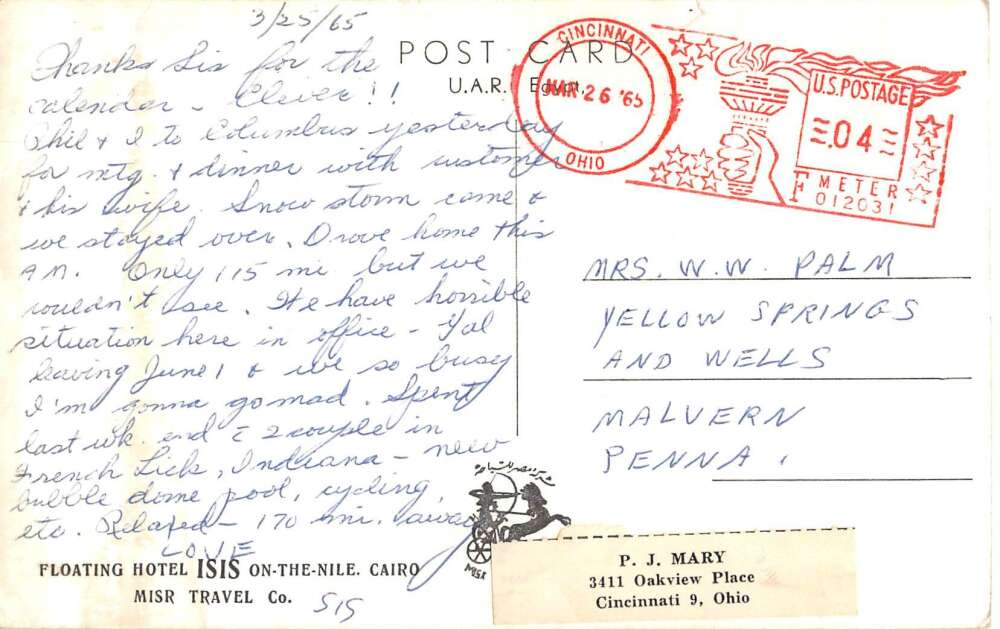 3/25/65
Thanks Sis for the
calender - Clever!!
Phil & I to Columbus yesterday
for mtg. & dinner with customer
& his wife. Snow storm came &
we stayed over. Drove home this
A.M. Only 115 mi but we
couldn't see. We have horrible
situation here in office - Gal
leaving June 1 & we so busy
I'm gonna go mad. Spent
last wk. end c̄ 2 couple in
French Lick, Indiana - new
bubble dome pool, cycling,
etc. Relaxed - 170 mi. away
LOVE
SIS
FLOATING HOTEL ISIS ON-THE-NILE. CAIRO
MISR TRAVEL Co.
POST CARD
U.A.R. Egypt.
CINCINNATI
MAR 26 '65
OHIO
U.S. POSTAGE
04
METER
012031
MRS. W. W. PALM
YELLOW SPRINGS
AND WELLS
MALVERN
PENNA.
MISR
P. J. MARY
3411 Oakview Place
Cincinnati 9, Ohio